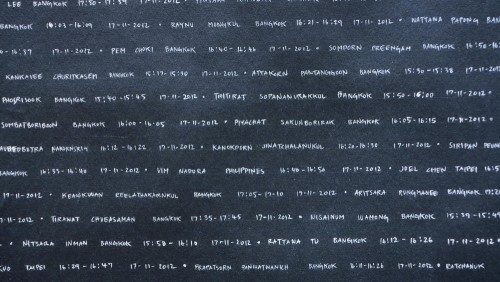 LEE BANGKOK 17:30 - 17:39 17-11-2012 •
BANGKOK 16:03 - 16:09 17-11-2012 • RAYNU MONGKUL BANGKOK 16:21 - 16:29 17-11-2012 • WATTANA PAPONG
- 16:37 17-11-2012 • PEM CHOKI BANGKOK 16:40 - 16:46 17-11-2012 • SOMPORN PREENGAM BANGKOK 16:50 -
KANOKAVEE CHORIPKASEM BANGKOK 15:17 - 15:30 17-11-2012 • ATTAKORN PANTANGNOON BANGKOK 15:30 - 15:38 17-11-2012
BANGKOK 15:40 - 15:45 17-11-2012 • THITIRAT SOPANANURAKKUL BANGKOK 15:50 - 16:00 17-11-2012 •
SOMBATBORIBOON BANGKOK 16:00 - 16:05 17-11-2012 • PIYACHAT SAKUNBORIRAK BANGKOK 16:05 - 16:15 17-11-2012 •
16:12 - 16:22 17-11-2012 • KANOKPORN JINATCHALANUKUL 16:20 - 16:30 17-11-2012 • SIRIPAN
BANGKOK 16:33 - 16:40 17-11-2012 • VIM NADURA PHILIPPINES 16:40 - 16:50 17-11-2012 • JOEL CHEN TAIPEI
17-11-2012 • BANGKOK 17:05 - 17:10 17-11-2012 • ARITSARA RUNGMANEE BANGKOK
-11-2012 • TIRANAT CHUEASAMAN BANGKOK 17:35 - 17:45 17-11-2012 • NISAINUM WAHONG BANGKOK 15:39 - 15:49
• NITSARA INMAN BANGKOK 15:58 - 16:10 17-11-2012 • RATTANA TU BANGKOK 16:12 - 16:26 17-11-2012 •
TAIPEI 16:29 - 16:47 17-11-2012 • BANGKOK 17-11-2012 • RATCHANUK